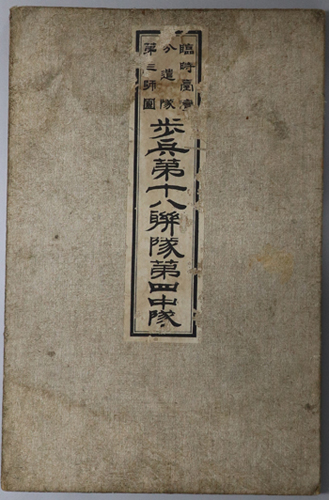 臨時台湾
分遣隊
第三師團
歩兵第十八聯隊第四中隊